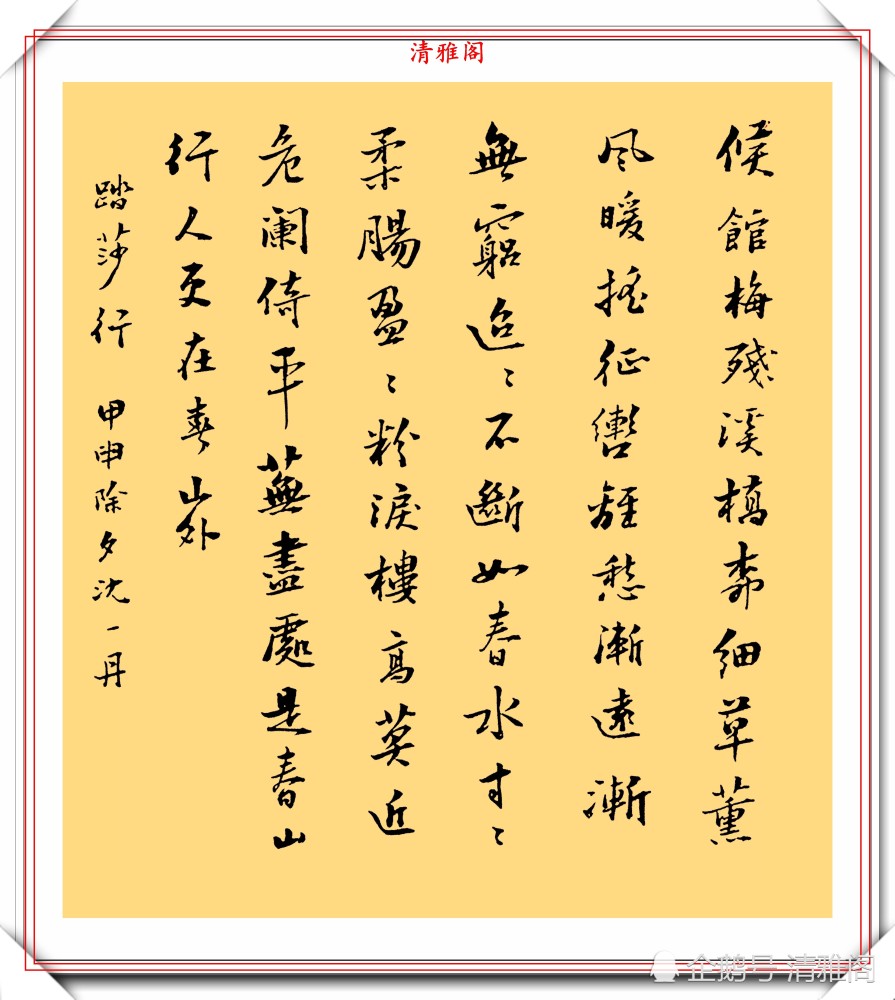 清雅阁
候館梅殘溪橋柳細草薰
風暖搖征轡離愁漸遠漸
無窮迢〻不斷如春水寸〻
柔腸盈〻粉淚樓高莫近
危闌倚平蕪盡處是春山
行人更在春山外
踏莎行 甲申除夕沈一丹
企鹅号 清雅阁